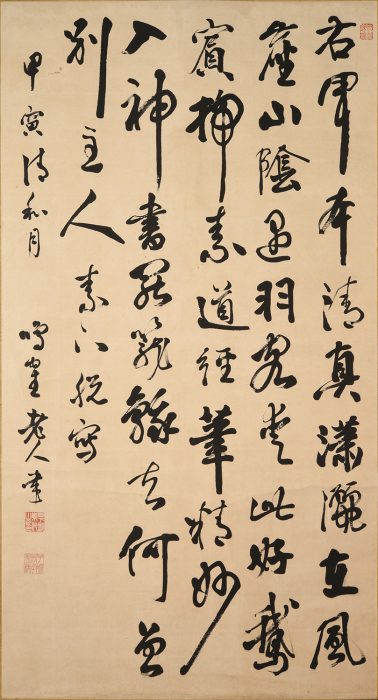 右軍本清真瀟灑在風
塵山陰遇羽客愛此好鵞
賓掃素道經筆精妙
入神書罷籠鵝去何曾
別主人 素下脫寫
甲寅清和月 老人書